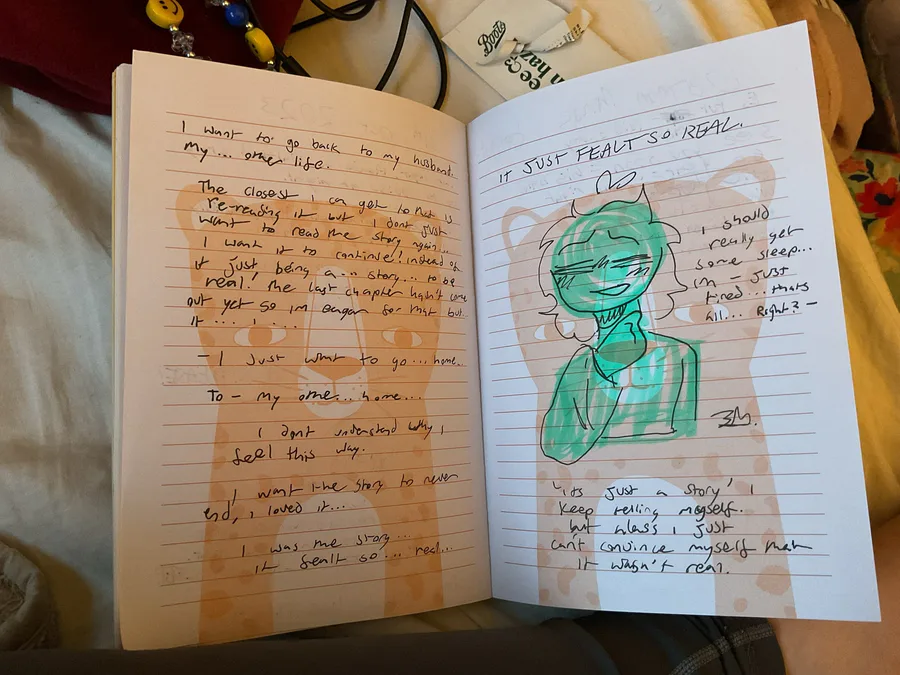 Boots
I want to go back to my husband.
My... other life.
The closest I can get to that is
re-reading it but I dont just
want to read the story again...
I want it to continue! instead of
it just being a... story... to be
real! the last chapter hasn't come
out yet so im eagar for that but..
it.... I....
- I Just want to go... home...
To - my ome... home...
I dont understand why I
feel this way.
I want the story to never
end, I loved it...
I was the story...
it fealt so... real...
IT JUST FEALT SO REAL.
I should
really get
some sleep...
im - Just
tired... thats
all... Right? -
3M.
'its Just a story' I
keep telling myself.
but alass I Just
cant convince myself that
it wasn't real.